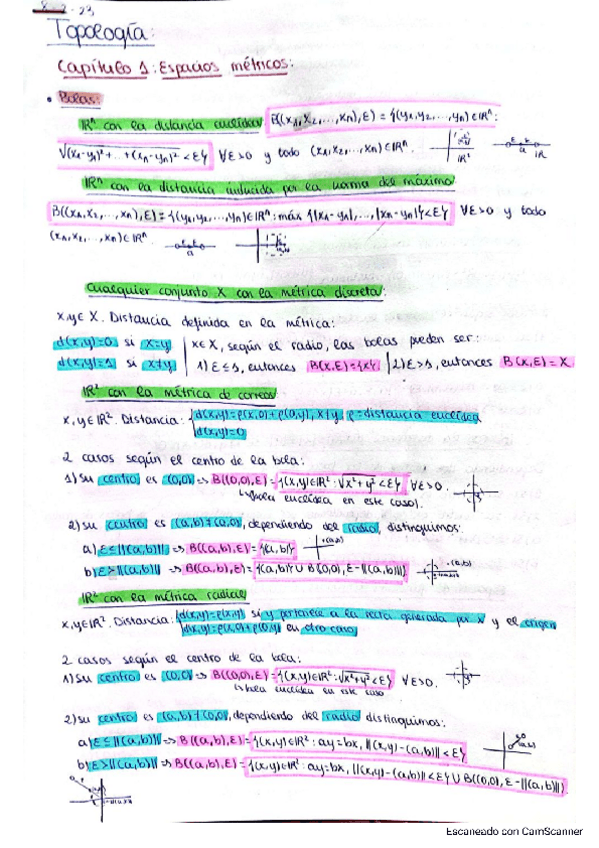 8-2-23
Topología:
Capítulo 1: Espacios métricos:
• Bolas:
ℝⁿ con la distancia euclídea B((x₁,x₂,...,xₙ),ε) = {(y₁,y₂,...,yₙ)∈ℝⁿ:
√(x₁-y₁)²+...+(xₙ-yₙ)² < ε} ∀ε>0 y todo (x₁,x₂,...,xₙ)∈ℝⁿ.
ℝ² ε ε a ℝ
ℝⁿ con la distancia inducida por la norma del máximo
B((x₁,x₂,...,xₙ),ε) = {(y₁,y₂,...,yₙ)∈ℝⁿ: máx{|x₁-y₁|,...,|xₙ-yₙ|}<ε} ∀ε>0 y todo
(x₁,x₂,...,xₙ)∈ℝⁿ. a
Cualquier conjunto X con la métrica discreta:
x,y∈X. Distancia definida en la métrica:
d(x,y)=0 si x=y | x∈X, según el radio, las bolas pueden ser:
d(x,y)=1 si x≠y | 1) ε≤1, entonces B(x,ε)={x} | 2) ε>1, entonces B(x,ε)=X
ℝ² con la métrica de correos
x,y∈ℝ². Distancia: {d(x,y)=ρ(x,0)+ρ(0,y), x≠y ρ=distancia euclídea
d(x,y)=0
2 casos según el centro de la bola:
1) Su centro es (0,0) ⇒ B((0,0),ε)={(x,y)∈ℝ²: √x²+y² <ε} ∀ε>0.
↳ bola euclídea en este caso).
2) Su centro es (a,b)≠(0,0), dependiendo del radio, distinguimos:
a) ε≤||(a,b)|| ⇒ B((a,b),ε)={(a,b)} ·(a,b)
b) ε>||(a,b)|| ⇒ B((a,b),ε)={(a,b)}∪B((0,0), ε-||(a,b)||) ·(a,b)
ℝ² con la métrica radial
x,y∈ℝ². Distancia: {d(x,y)=ρ(x,y) si y pertenece a la recta generada por x y el origen
d(x,y)=ρ(x,0)+ρ(0,y) en otro caso
2 casos según el centro de la bola:
1) Su centro es (0,0) ⇒ B((0,0),ε)={(x,y)∈ℝ²: √x²+y² <ε} ∀ε>0.
↳ bola euclídea en este caso
2) Su centro es (a,b)≠(0,0), dependiendo del radio distinguimos:
a) ε≤||(a,b)|| ⇒ B((a,b),ε)={(x,y)∈ℝ²: ay=bx, ||(x,y)-(a,b)||<ε} (a,b)
b) ε>||(a,b)|| ⇒ B((a,b),ε)={(x,y)∈ℝ²: ay=bx, ||(x,y)-(a,b)||<ε}∪B((0,0), ε-||(a,b)||)
Escaneado con CamScanner